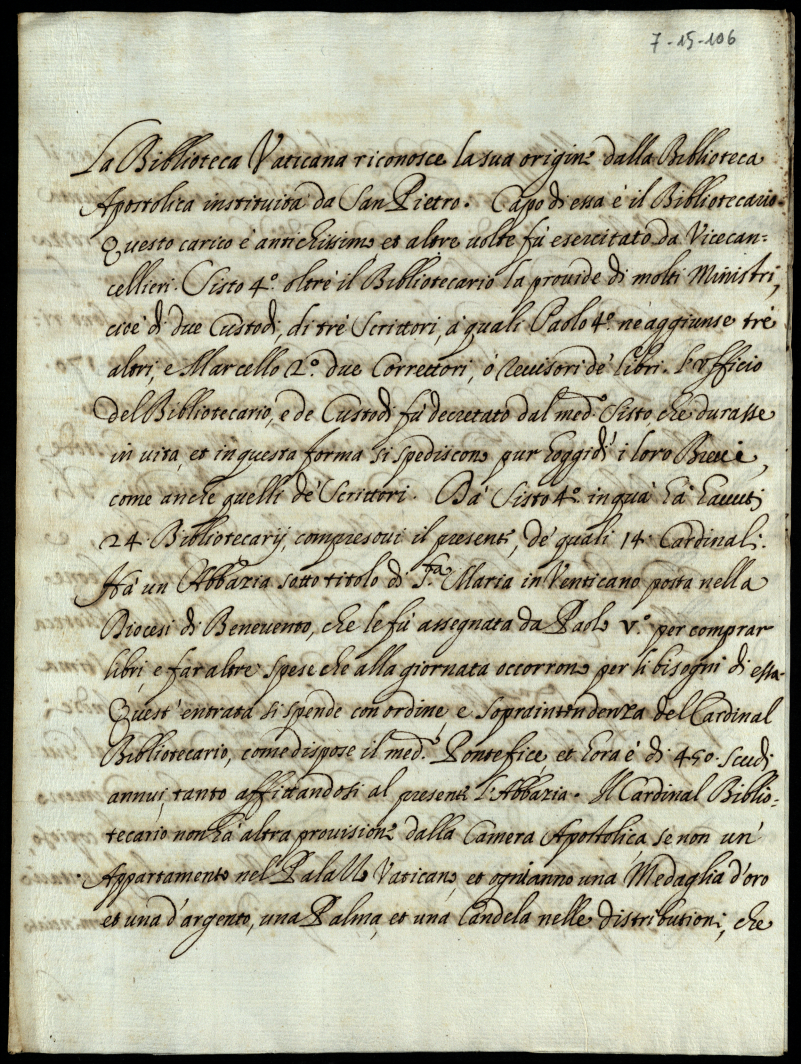 7-15-106
La Biblioteca Vaticana riconosce la sua origine dalla Biblioteca
Apostolica instituita da San Pietro. Capo di essa è il Bibliotecario.
Questo carico è antichissimo et altre uolte fù esercitato da Vicecan=
cellieri. Sisto 4.º oltre il Bibliotecario la prouide di molti Ministri,
cioè di due Custodi, di trè Scrittori, a' quali Paolo 4.º ne aggiunse trè
altri, e Marcello 2.º due Correttori, ò reuisori de' libri. L'Vfficio
del Bibliotecario, e de Custodi fù decretato dal med.º Sisto che durasse
in uita, et in questa forma si spediscono pur hoggidì i loro Breui,
come anche quelli de' Scrittori. Da Sisto 4.º in quà hà hauuti
24. Bibliotecarij, compresoui il presente, de' quali 14. Cardinali.
Hà un Abbazia sotto titolo di S.ta Maria in Venticano posta nella
Diocesi di Beneuento, che le fù assegnata da Paolo V.º per comprar
libri, e far altre spese che alla giornata occorrono per li bisogni di essa.
Quest' entrata si spende con ordine e sopraintendenza del Cardinal
Bibliotecario, come dispose il med.º Pontefice et hora è di 450. scudi
annui, tanto affittandosi al presente l'Abbazia. Il Cardinal Biblio=
tecario non hà altra prouisione dalla Camera Apostolica, se non un'
Appartamento nel Palazzo Vaticano, et ogni anno una Medaglia d'oro
et una d'argento, una Palma, et una Candela nelle distributioni, che